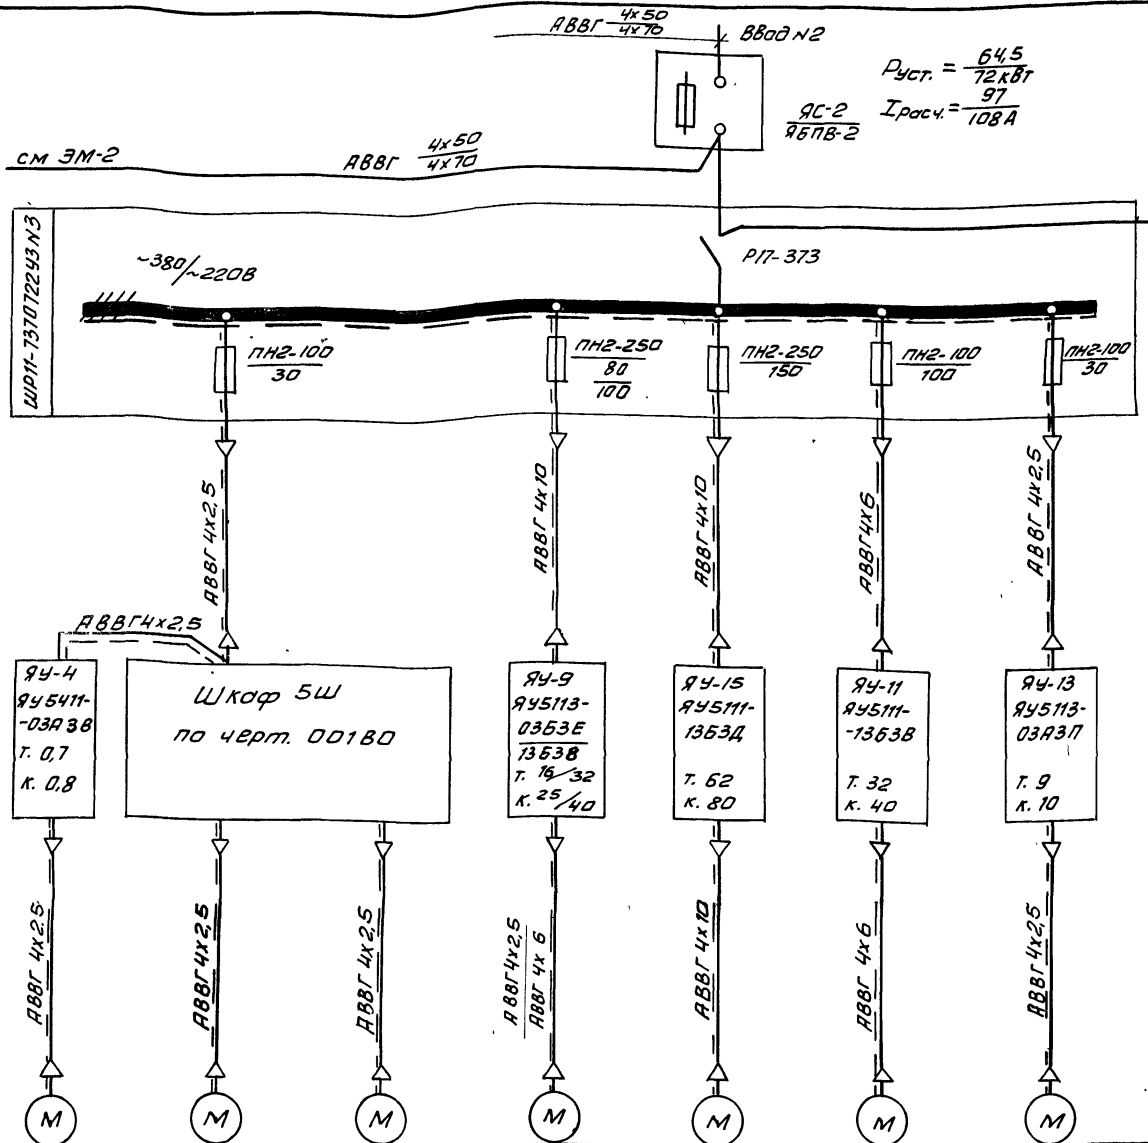 АВВГ 4х50
4х70
ВВод №2
Руст. = 64,5
72 кВт
Iрасч. = 97
108А
ЯС-2
ЯБПВ-2
см ЭМ-2
АВВГ 4х50
4х70
~380/~220В
РП-373
ПН2-100
30
ПН2-250
80
100
ПН2-250
150
ПН2-100
100
ПН2-100
30
АВВГ 4х2,5
АВВГ 4х10
АВВГ 4х10
АВВГ 4х6
АВВГ 4х2,5
АВВГ 4х2,5
ЯУ-4
ЯУ5411-
-03А3В
Т. 0,7
К. 0,8
Шкаф 5Ш
по черт. 001В0
ЯУ-9
ЯУ5113-
03Б3Е
13Б3В
Т. 16/32
К. 25/40
ЯУ-15
ЯУ5111-
13Б3Д
Т. 62
К. 80
ЯУ-11
ЯУ5111-
-13Б3В
Т. 32
К. 40
ЯУ-13
ЯУ5113-
03А3П
Т. 9
К. 10
АВВГ 4х2,5
АВВГ 4х2,5
АВВГ 4х2,5
АВВГ 4х2,5
АВВГ 4х6
АВВГ 4х10
АВВГ 4х6
АВВГ 4х2,5
М
М
М
М
М
М
М